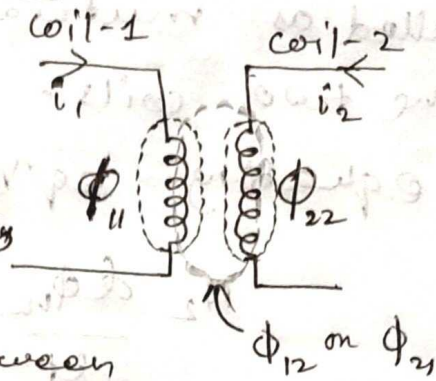 coil-1
coil-2
i₁
i₂
ϕ₁₁
ϕ₂₂
ϕ₁₂ or ϕ₂₁
ween